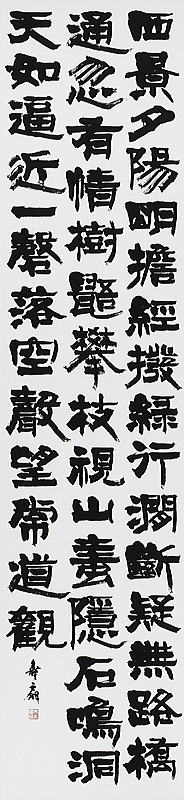 西景夕陽明擔經撥綠行澗斷疑無路橋
通忽有情樹鼯攀枝視山隱石鳴洞
天如逼近一磬落空聲望常道觀